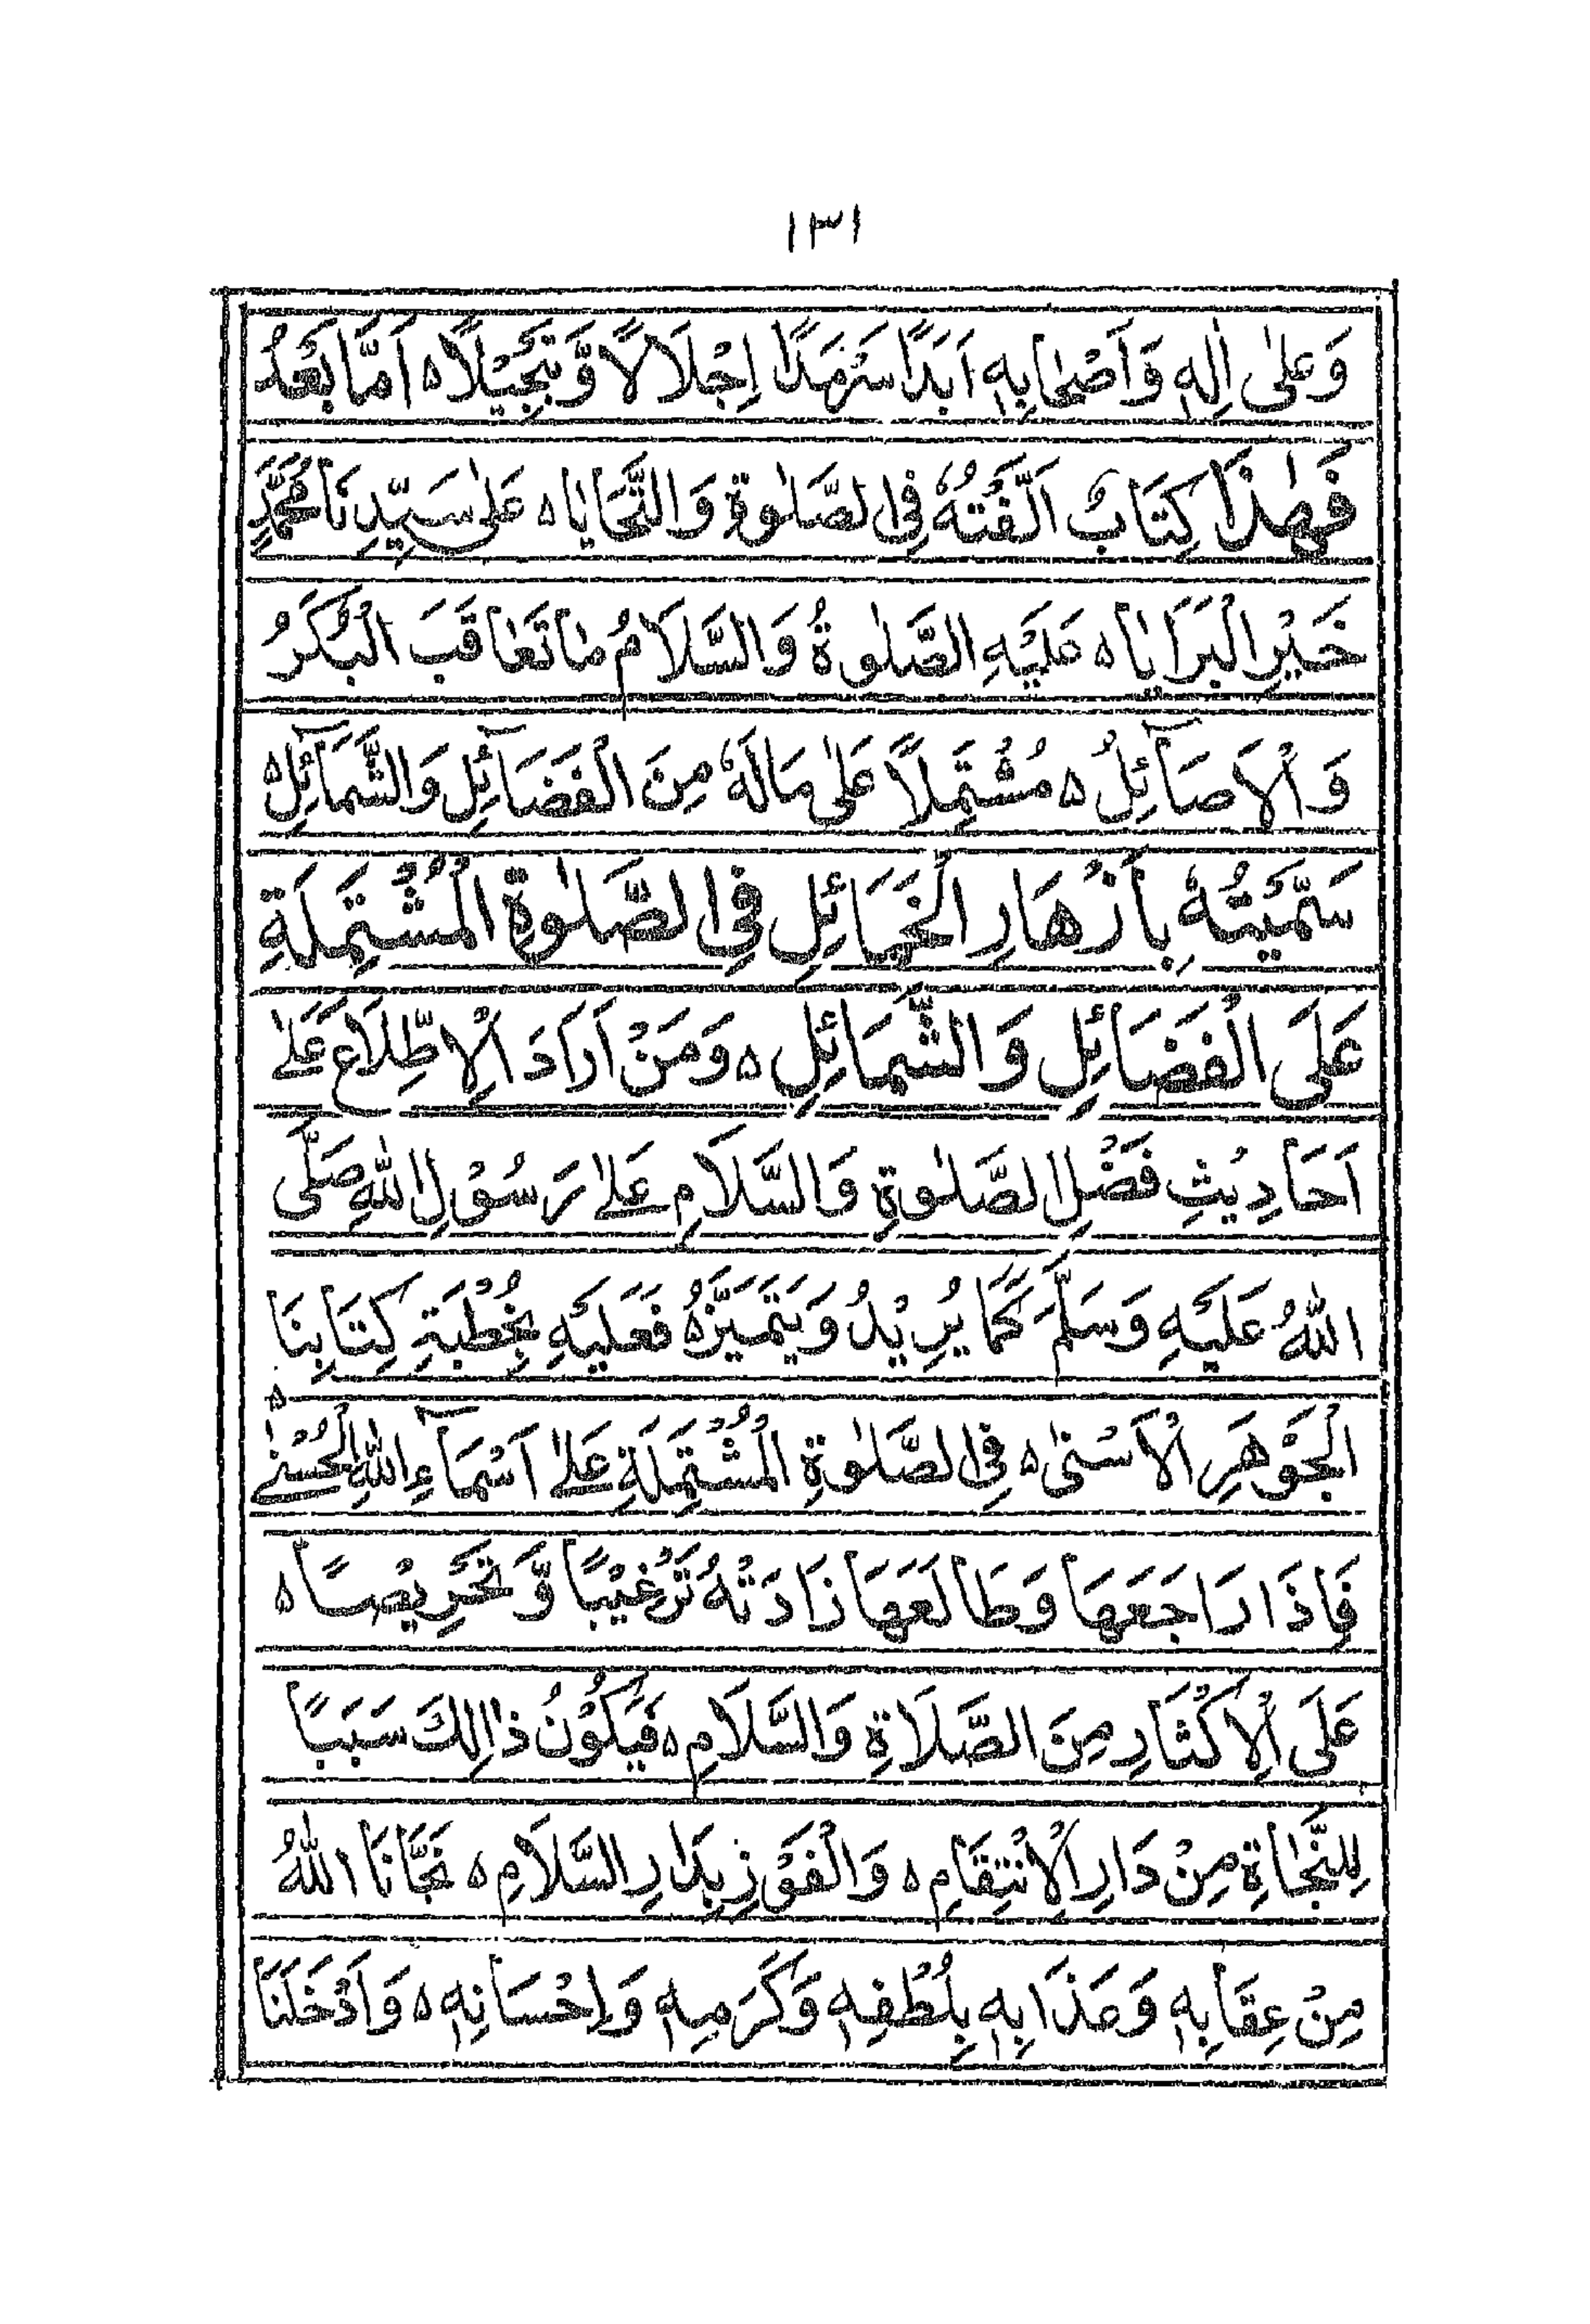 ١٣١
وَعَلٰى اٰلِهٖ وَاَصْحَابِهٖ اَبَدًا سَرْمَدًا اِجْلَالًا وَّتَبْجِيْلًا ه اَمَّا بَعْدُ
فَهٰذَا كِتَابٌ اَلَّفْتُهٗ فِى الصَّلٰوةِ وَالتَّحَايَا ه عَلٰى سَيِّدِنَا مُحَمَّدٍ
خَيْرِ الْبَرَايَا ه عَلَيْهِ الصَّلٰوةُ وَالسَّلَامُ مَا تَعَاقَبَ الْبُكَرُ
وَالْاَصَآئِلُ ه مُشْتَمِلًا عَلٰى مَالَهٗ مِنَ الْفَضَآئِلِ وَالشَّمَآئِلِ ه
سَمَّيْتُهٗ بِاَزْهَارِ الْخَمَائِلِ فِى الصَّلٰوةِ الْمُشْتَمِلَةِ
عَلَى الْفَضَائِلِ وَالشَّمَائِلِ ه وَمَنْ اَرَادَ الْاِطِّلَاعَ عَلٰے
اَحَادِيْثِ فَضْلِ الصَّلٰوةِ وَالسَّلَامِ عَلٰے رَسُوْلِ اللّٰهِ صَلَّى
اللّٰهُ عَلَيْهِ وَسَلَّمَ كَمَا يُرِيْدُ وَيَتَمَيَّزُهٗ فَعَلَيْهِ بِخُطْبَةِ كِتَابِنَا
الْجَوْهَرِ الْاَسْنٰى ه فِى الصَّلٰوةِ الْمُشْتَمِلَةِ عَلٰے اَسْمَآءِ اللّٰهِ الْحُسْنٰے ه
فَاِذَا رَاجَعَهَا وَطَالَعَهَا زَادَتْهُ تَرْغِيْبًا وَّتَحْرِيْصًا ه
عَلَى الْاِكْثَارِ مِنَ الصَّلَاةِ وَالسَّلَامِ ه فَيَكُوْنُ ذٰالِكَ سَبَبًا
لِلنَّجَاةِ مِنْ دَارِ الْاِنْتِقَامِ ه وَالْفَوْزِ بِدَارِ السَّلَامِ ه نَجَّانَا اللّٰهُ
مِنْ عِقَابِهٖ وَعَذَابِهٖ بِلُطْفِهٖ وَكَرَمِهٖ وَاِحْسَانِهٖ ه وَاَدْخَلَنَا